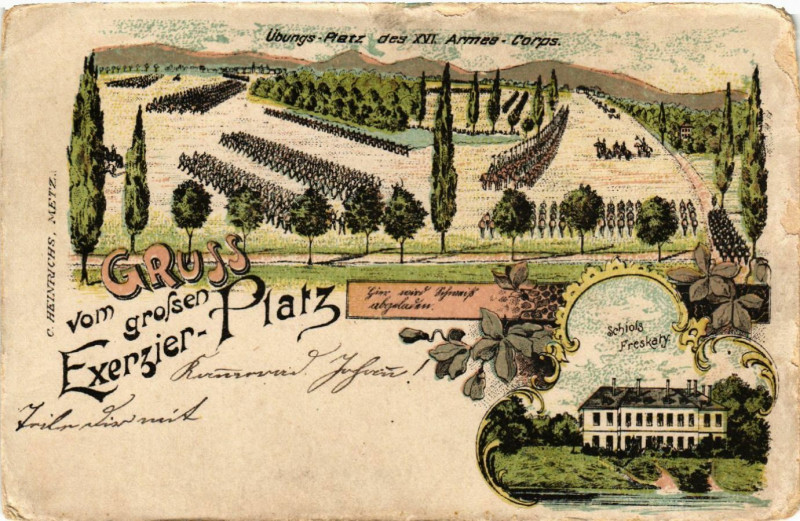 Übungs-Platz des XVI. Armee-Corps.
C. HEINRICHS, METZ.
GRUSS
vom großen
Exerzier-Platz
Hier wird Schweiß
abgeladen.
Schloß
Freskaty
Kamerad Johann!
Teile Dir mit